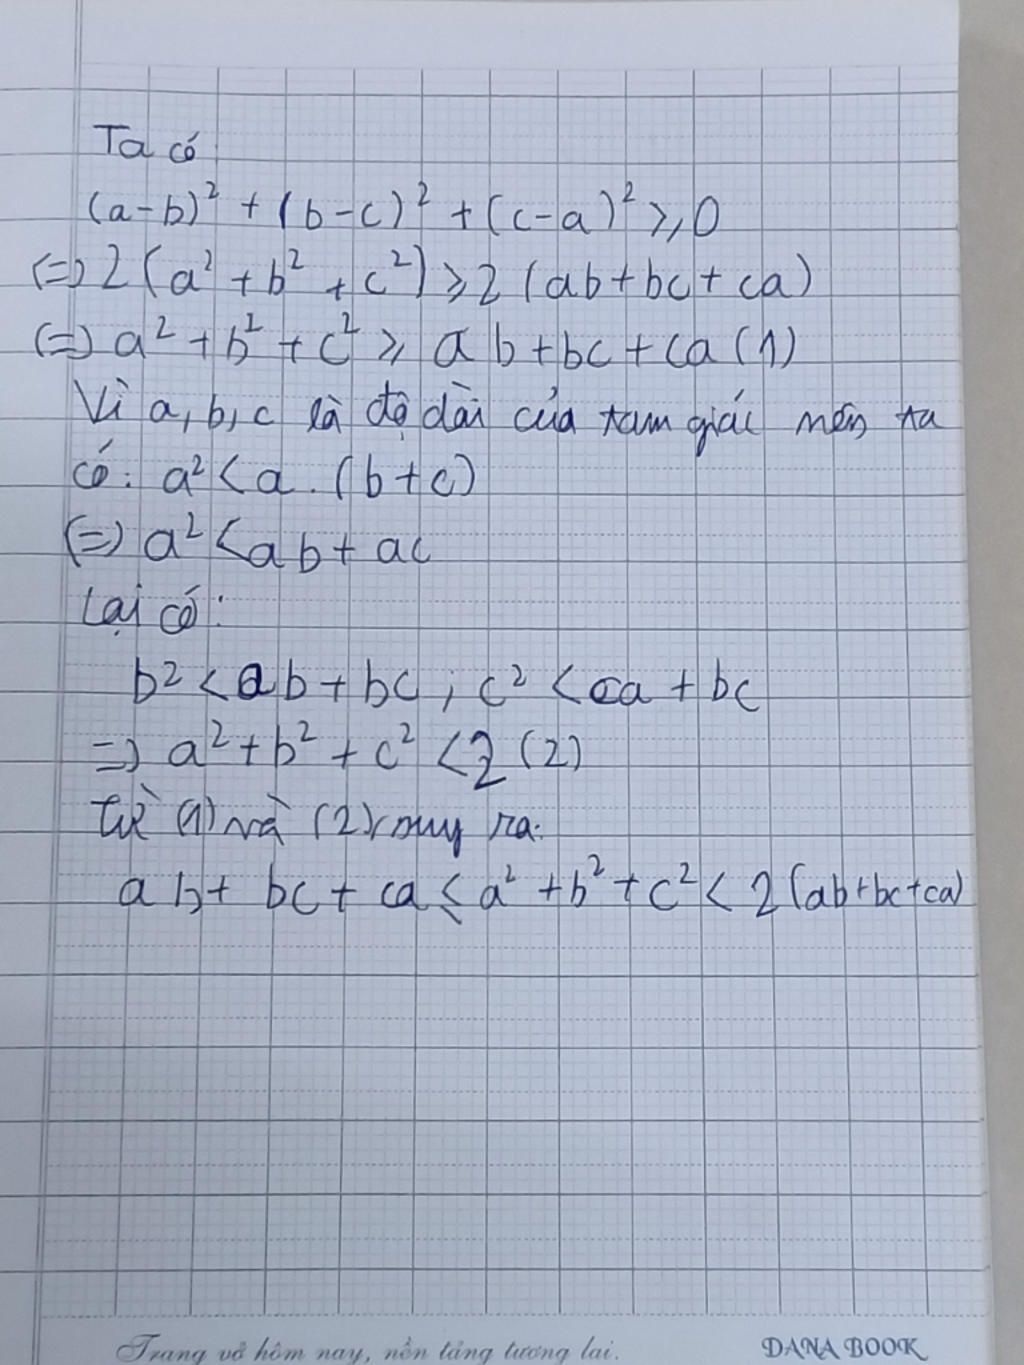 Ta có
(a-b)² + (b-c)² + (c-a)² ≥ 0
(=) 2(a² + b² + c²) ≥ 2(ab+bc+ca)
(=) a² + b² + c² ≥ ab+bc+ca (1)
Vì a, b, c là độ dài của tam giác nên ta
có: a² < a.(b+c)
(=) a² < ab + ac
Lại có:
b² < ab + bc ; c² < ca + bc
=) a² + b² + c² < 2 (2)
Từ (1) và (2) suy ra:
ab + bc + ca ≤ a² + b² + c² < 2(ab+bc+ca)
Trang vở hôm nay, nền tảng tương lai.
DANA BOOK